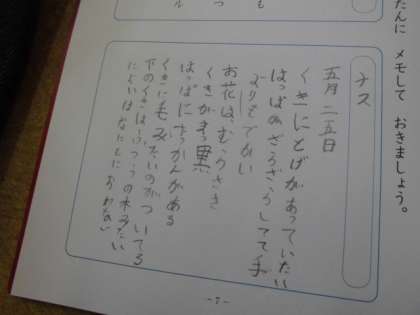 たんに メモして おきましょう。
ナス
五月 二五日
くきにとげがあっていたい
はっぱがざらざらしてて手
よりもでかい
お花は、むらさき
くきがまっ黒
はっぱに がある
くきに毛みたいのがついてる
下のくきは、ふつうの木みたい
においはなんにもにおわない
も
つ
ル
-7-